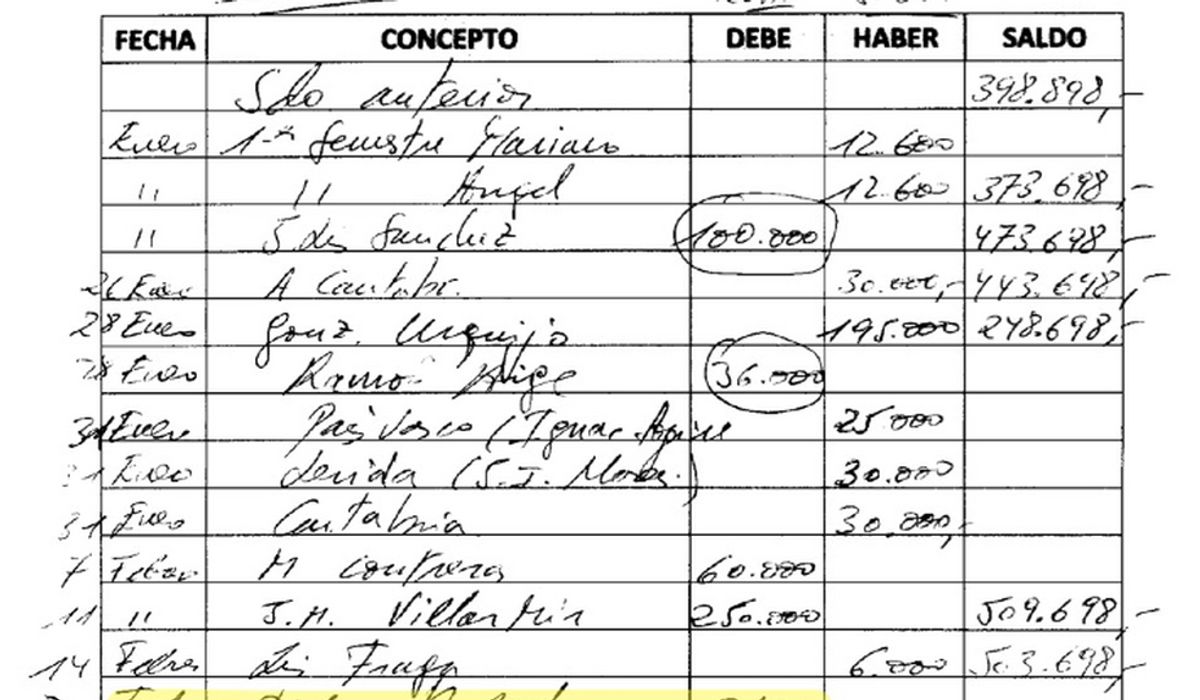 FECHA CONCEPTO DEBE HABER SALDO
Sdo anterior 398.898,-
Enero 1er Semestre Mariano 12.600
" " Angel 12.600 373.698,-
" J. Luis Sanchez 100.000 473.698,-
26 Enero A Cantabr. 30.000,- 443.698,-
28 Enero Gonz. Urquijo 195.000 248.698,-
28 Enero Ramón 36.000
31 Enero País Vasco (Ignac. 25.000
31 Enero Lerida (S.I. 30.000
31 Enero Cantabria 30.000,-
7 Febrer M Contreras 60.000
11 " J.M. Villar Mir 250.000 509.698,-
14 Febrer Luis Fraga 6.000 503.698,-